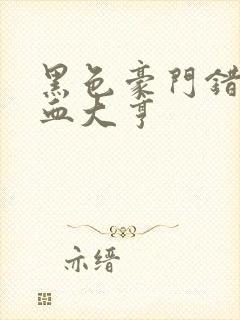 黑色豪門錯
血大亨
亦缙